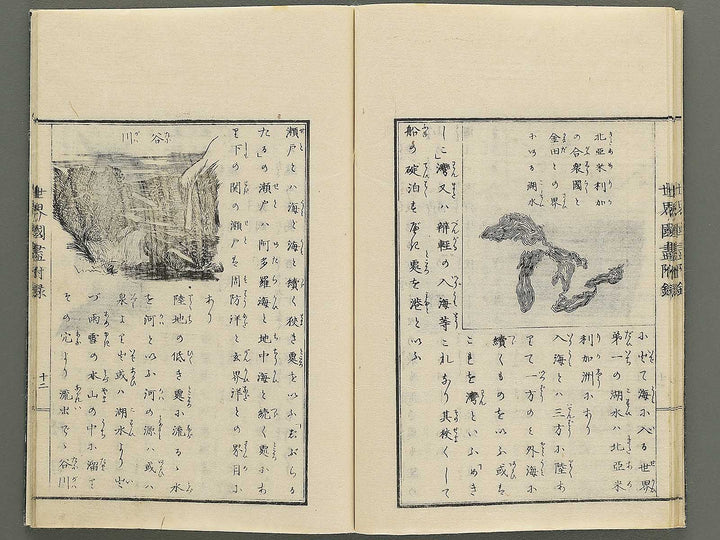 世界國盡附録
北亞米利加
の合衆國と
金田との界
にある湖水
にせで海に入る世界
第一の湖水ハ北亞米
利加洲にあり
入海とハ三方に陸あ
りて一方のミ外海に
續くものをいふ或ハ
こもを灣といふめき
し古灣又ハ辨輕の入海等これなり其狹くして
船の碇泊すべき處を港といふ
瀬戸とハ海と海と續く狹き處をいふじぶらる
たるの瀬戸ハ阿多羅海と地中海と續く處にあ
り下の関の瀬戸ハ周防洋と玄界洋との界目に
あり
谷川
陸地の低き處に流るゝ水
を河といふ河の源ハ或ハ
泉より出或ハ湖水より出
づ雨雪の水山の中に溜て
その穴より流出でゝ谷川
世界國盡附録
十二